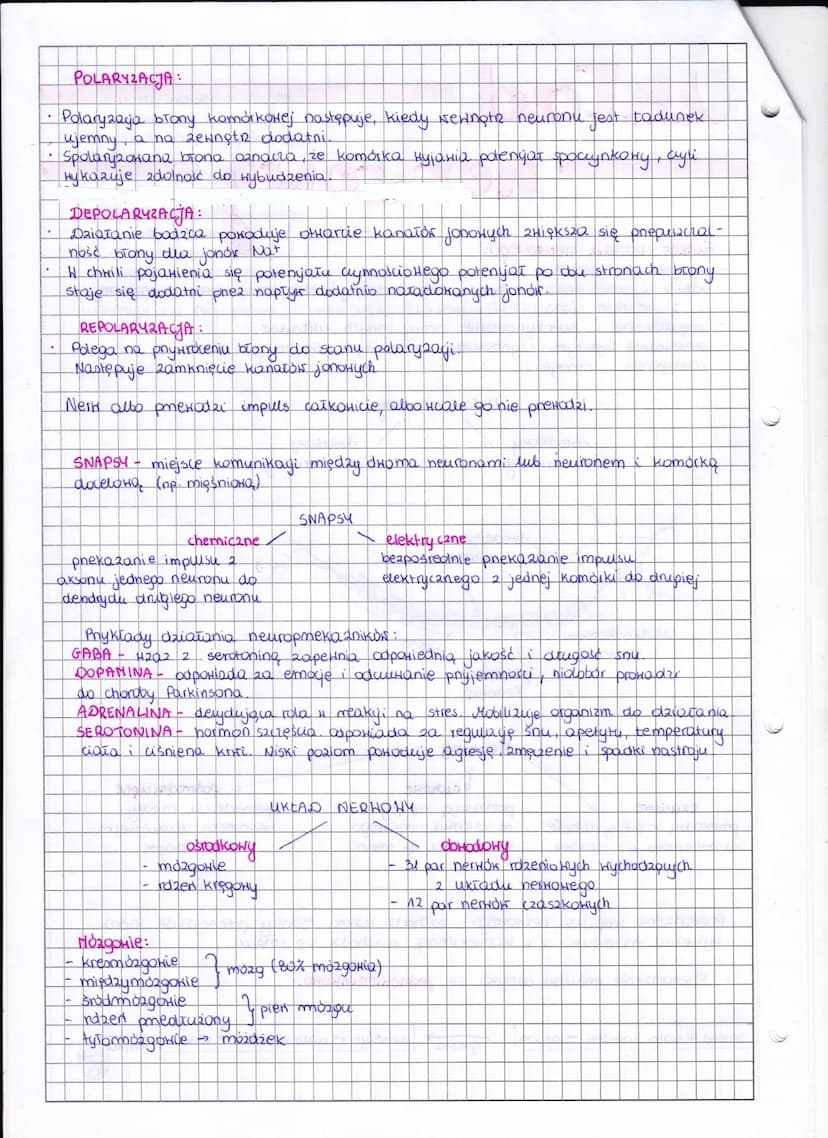 POLARYZACJA:
· Polaryzacja błony komórkowej następuje, kiedy wewnątrz neuronu jest ładunek
ujemny, a na zewnątrz dodatni.
· Spolaryzowana błona oznacza, że komórka wyjawia potencjał spoczynkowy, czyli
wykazuje zdolność do wybudzenia.
DEPOLARYZACJA:
· Działanie bodźca powoduje otwarcie kanałów jonowych zwiększa się przepuszczal-
ność błony dla jonów Na+
· W chwili pojawienia się potencjału czynnościowego potencjał po obu stronach błony
staje się dodatni przez napływ dodatnio naładowanych jonów.
REPOLARYZACJA:
· Polega na przywróceniu błony do stanu polaryzacji.
Następuje zamknięcie kanałów jonowych
Nerw albo przewodzi impuls całkowicie, albo wcale go nie przewodzi.
SNAPSY - miejsce komunikacji między dwoma neuronami lub neuronem i komórką
docelową (np. mięśniową)
SNAPSY
chemiczne elektryczne
przekazanie impulsu z bezpośrednie przekazanie impulsu
aksonu jednego neuronu do elektrycznego z jednej komórki do drugiej
dendrydu drugiego neuronu
Przykłady działania neuroprzekaźników:
GABA - wraz z serotoniną zapewnia odpowiednią jakość i długość snu.
DOPAMINA - odpowiada za emocje i odczuwanie przyjemności, niedobór prowadzi
do choroby Parkinsona.
ADRENALINA - decydująca rola w reakcji na stres. Mobilizuje organizm do działania
SEROTONINA - hormon szczęścia. odpowiada za regulację snu, apetytu, temperatury
ciała i ciśniena krwi. Niski poziom powoduje agresję, zmęczenie i spadki nastroju
UKŁAD NERWOWY
ośrodkowy obwodowy
- mózgowie - 31 par nerwów rdzeniowych wychodzących
- rdzeń kręgowy z układu nerwowego
- 12 par nerwów czaszkowych
Mózgowie:
- kresomózgowie
- międzymózgowie } mózg (80% mózgowia)
- śródmózgowie
- rdzeń przedłużony } pień mózgu
- tyłomózgowie → móżdżek